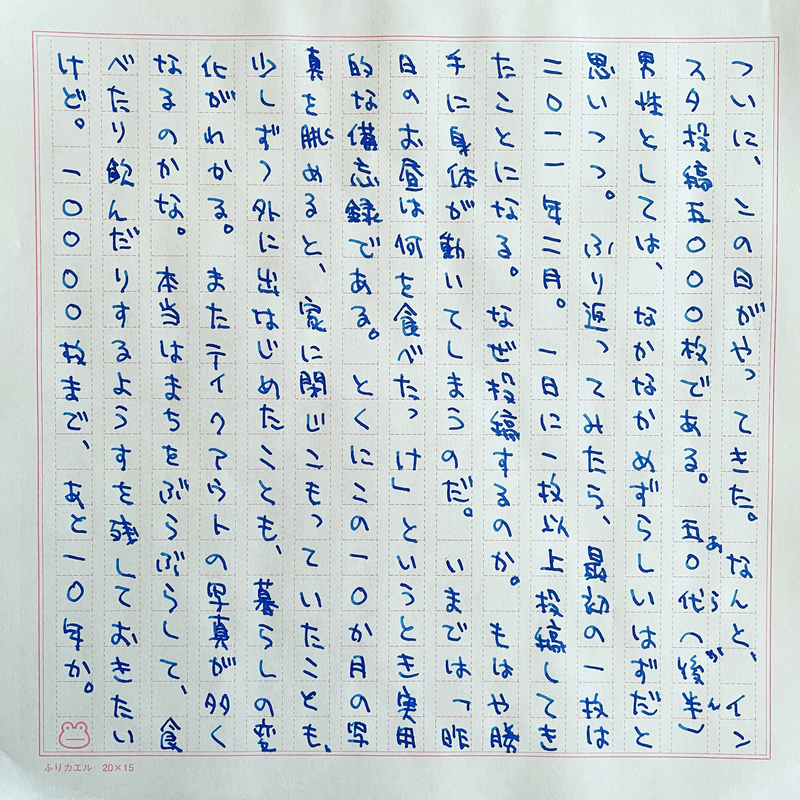 ついに、この日がやってきた。なんと、イン
スタ投稿五〇〇〇枚である。五〇代（後半）
あらかん
男性としては、なかなかめずらしいはずだと
思いつつ。ふり返ってみたら、最初の一枚は
二〇一一年二月。一日に一枚以上投稿してき
たことになる。なぜ投稿するのか。もはや勝
手に身体が動いてしまうのだ。いまでは「昨
日のお昼は何を食べたっけ」というとき実用
的な備忘録である。とくにこの一〇か月の写
真を眺めると、家に閉じこもっていたことも、
少しずつ外に出はじめたことも、暮らしの変
化がわかる。またテイクアウトの写真が多く
なるのかな。本当はまちをぶらぶらして、食
べたり飲んだりするようすを残しておきたい
けど。一〇〇〇〇枚まで、あと一〇年か。
ふりカエル 20×15